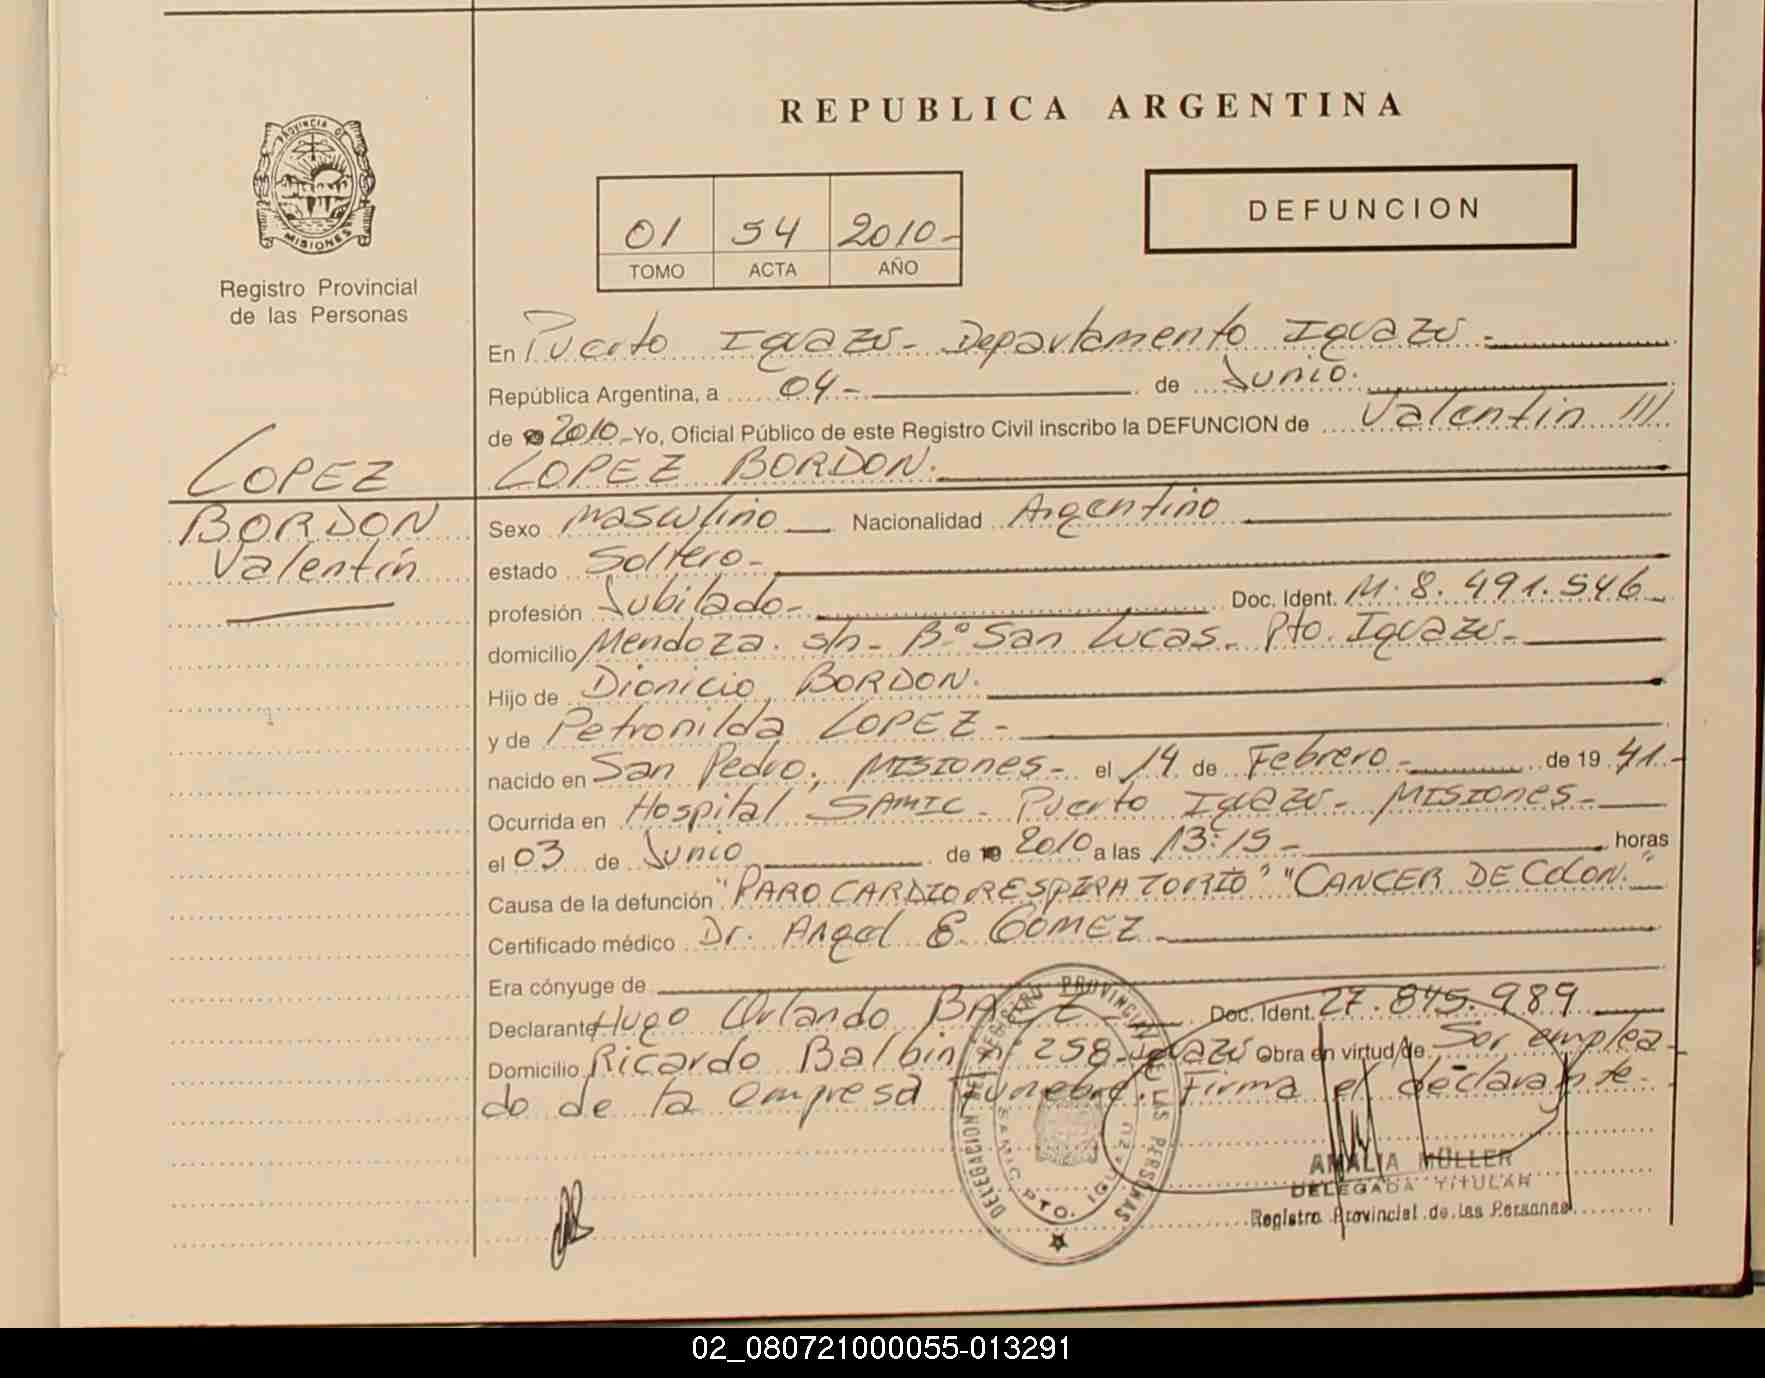 REPUBLICA ARGENTINA
PROVINCIA DE
MISIONES
Registro Provincial
de las Personas
DEFUNCION
01 54 2010-
TOMO ACTA AÑO
En Puerto Iguazú - Departamento Iguazú -
República Argentina, a 04- de Junio.
de 2010 - Yo, Oficial Público de este Registro Civil inscribo la DEFUNCION de Valentin ///
LOPEZ BORDON.
LOPEZ
BORDON
Valentín
Sexo Masculino Nacionalidad Argentino
estado Soltero -
profesión Jubilado - Doc. Ident. M. 8.491.546-
domicilio Mendoza. s/n - Bº San Lucas - Pto. Iguazú -
Hijo de Dionicio BORDON.
y de Petronilda LOPEZ -
nacido en San Pedro, Misiones - el 14 de Febrero - de 1941 -
Ocurrida en Hospital SAMIC - Puerto Iguazú - Misiones -
el 03 de Junio de 2010 a las 13:15 - horas
Causa de la defunción "PARO CARDIORESPIRATORIO" "CANCER DE COLON."
Certificado médico Dr. Angel E. GOMEZ
Era cónyuge de
Declarante Hugo Orlando BAEZ Doc. Ident. 27.845.989
Domicilio Ricardo Balbin nº 258 - Iguazú Obra en virtud de Ser emplea
do de la empresa Funebre. Firma el declarante -
DELEGACION DEL REGISTRO PROVINCIAL DE LAS PERSONAS
SAMIC PTO. IGUAZU
AMALIA MÜLLER
DELEGADA TITULAR
Registro Provincial de las Personas
02_080721000055-013291